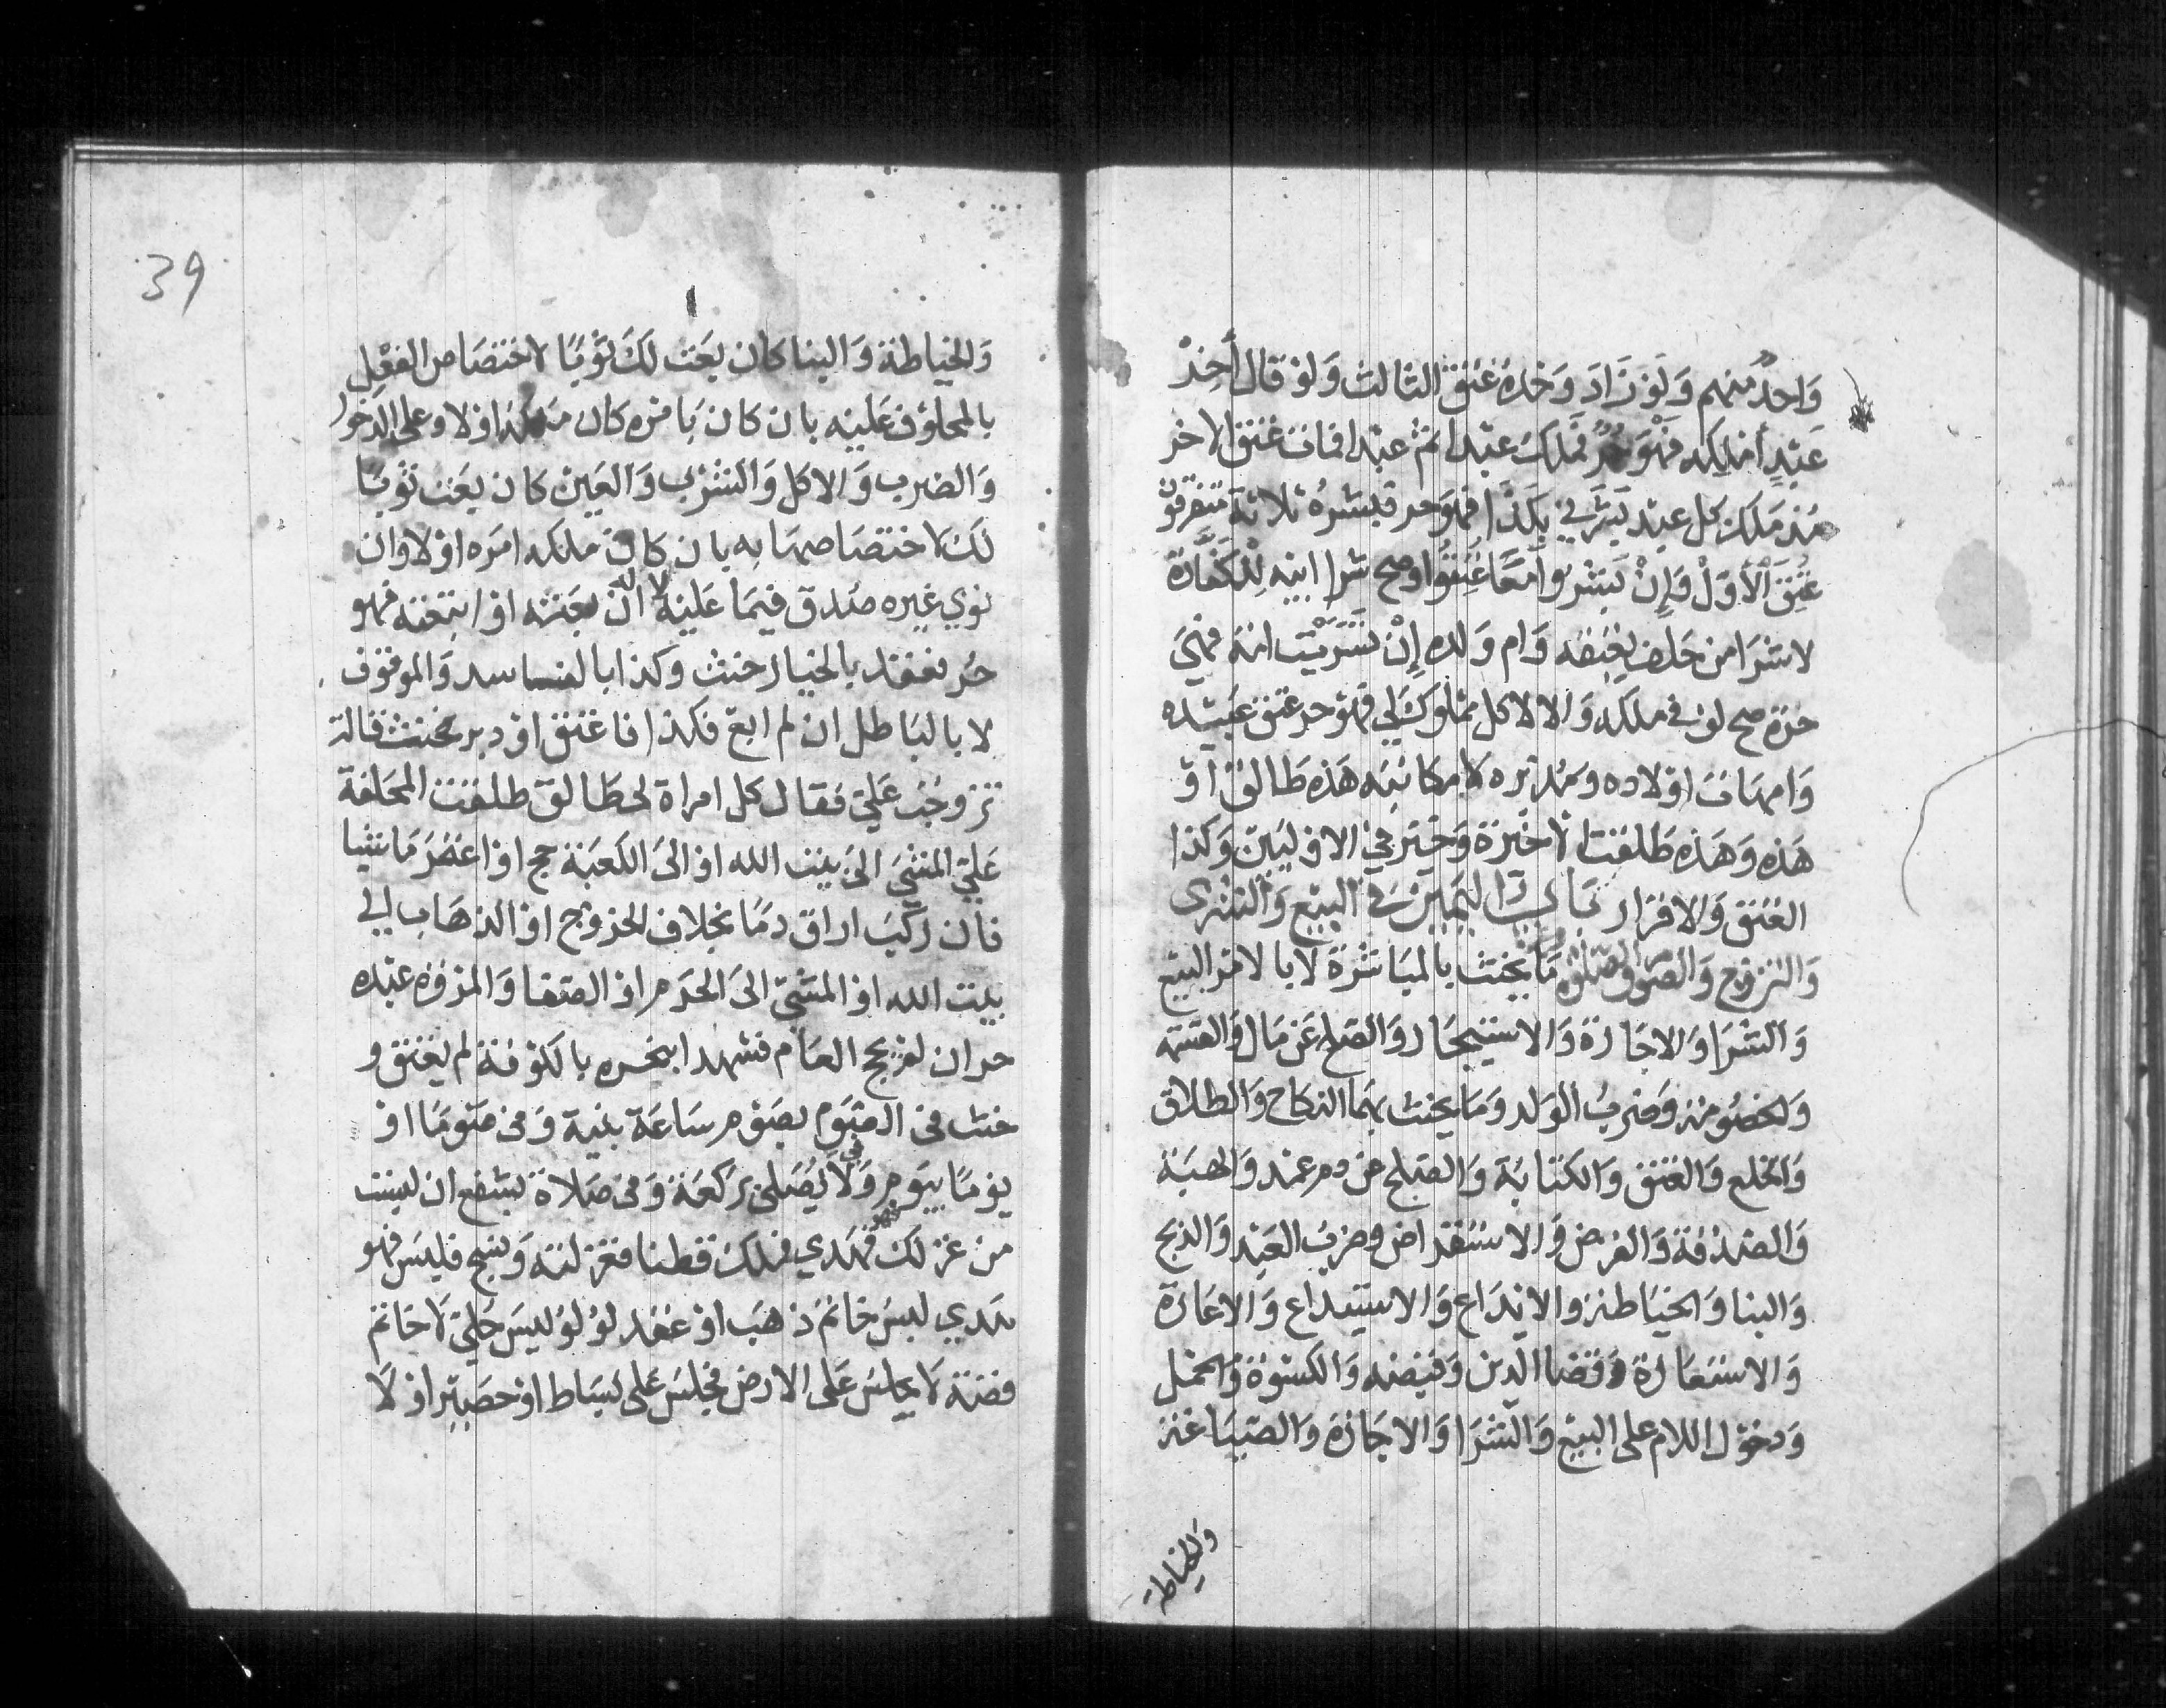 وَاحِدٌ منهم وَلَوْ زَادَ وَحْدَهُ عُتِقَ الثالث وَلَوْ قَالَ أَخِرُ
عَبْدٍ أمْلِكه فَهُوَ حُرٌّ فَمَلكَ عَبْدا ثم عبْدا فمات عتق الاخر
مُذ مَلَك كل عبْد بَشَّرَني بكَذَا فهوَ حر فبَشَّرهُ ثلاثة متَفرقوْن
عُتِقَ الْأَوَّلْ وَإِنْ بَشَّرُوا مَعًا عُتِقُوا وصح شرا ابيْهِ لِلْكَفَّارَة
لا شرَا من حَلف بِعِتقه وَام وَلده إِنْ تَسَرَّيْت امَة فهيَ
حرة صح لو في ملكه وَالا لا كل مملوك لي فهوَ حر عتق عَبيْده
وَامهات اوْلاده وَمُدبره لا مكاتبَه هَذه طَالق اوْ
هَذه وَهَذه طَلقت الاخيْرة وَخُيّر في الاوْليَيْن وَكذا
العتق وَالاقرار بَاب اليَمِيْن في البَيْع وَالشرى
وَالتزوج وَالصوم وَالصلوة مَا يحنث بالمبَاشرة لا بالامر البيع
وَالشرَا وَالاجَارة وَالاسْتيجَار وَالصلح عَن مَال وَالقسمَة
وَالخصُومة وَضرب الوَلد وَمَا يحنث بهمَا النكاح وَالطلاق
وَالخلع وَالعتق وَالكتابَة وَالصلح من دم عمد وَالهبَة
وَالصَدقة وَالقرض وَالاسْتقراض وضرب العَبْد وَالذبح
وَالبنا وَالخيَاطة والايْدَاع وَالاستيداع وَالاعَارة
وَالاسْتعَارة وَقضا الدين وَقبضه وَالكسْوة وَالحمل
وَدخوْل اللام على البيْع وَالشرَا وَالاجَارة وَالصيَاغة
وَالخياطة
39
وَالخياطة وَالبنا كان بعَت لكَ ثوْبًا لاختصَاص الفعْل
بالمحلوْف عَليْه بان كان بَامره كان ملكه اوْ لا وعلى الدخول
وَالضرب وَالاكل وَالشرْب وَالعَيْن كان بعَت ثوْبًا
لكَ لاختصَاصهَا به بان كان ملكه امَره اوْ لا وان
نوي غيره صُدق فيمَا عَليْه لا له ان بعَته اوْ ابتعته فهو
حُر فعقد بالخيار حنث وَكذا بالفاسد وَالموقوْف
لا بالبَاطل ان لم ابع فكذا فاعتق اوْ دبر حنث قالت
تزوجْت عَليّ فقال كل امراة لي طَالق طلقت المحَلفة
عَليّ المشيَ الىَ بيْت الله اوْ الىَ الكعبَة حج اوْ اعتمَر مَاشيا
فان ركبَ اراق دمَا بخلاف الخروْج اوْ الذهَاب الي
بيت الله اوْ المشيّ الىَ الحَرَم اوْ الصفا وَالمرْوة عبْده
حر ان لم يحج العَام فشهدا بنحره بالكوْفة لم يعتق و
حنث في لا يصَوم بصَوْم سَاعَة بنية وَفي صَوْمًا اوْ
يوْمًا بيَوم وَفي لا يُصَلي بركعَة وَفي صَلاة بشفع ان لبست
من غزلك فهوَ هَدي فملك قطنا فغزلته وَنسج فلبسَ فهو
هَدي لبسَ خاتم ذهَب اوْ عقد لؤلؤ لبس حُليّ لا خاتم
فضة لا يجلسَ عَلى الارض فجلسَ عَلى بسَاط اوْ حصَير اوْ لا